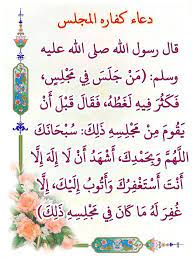 دعاء كفاره المجلس
قال رسول الله صلى الله عليه
وسلم: (مَنْ جَلَسَ فِي مَجْلِسٍ،
فَكَثُرَ فِيهِ لَغَطُهُ، فَقَالَ قَبْلَ أَنْ
يَقُومَ مِنْ مَجْلِسِهِ ذَلِكَ: سُبْحَانَكَ
اللَّهُمَّ وَبِحَمْدِكَ، أَشْهَدُ أَنْ لَا إِلَهَ إِلَّا
أَنْتَ أَسْتَغْفِرُكَ وَأَتُوبُ إِلَيْكَ، إِلَّا
غُفِرَ لَهُ مَا كَانَ فِي مَجْلِسِهِ ذَلِكَ)